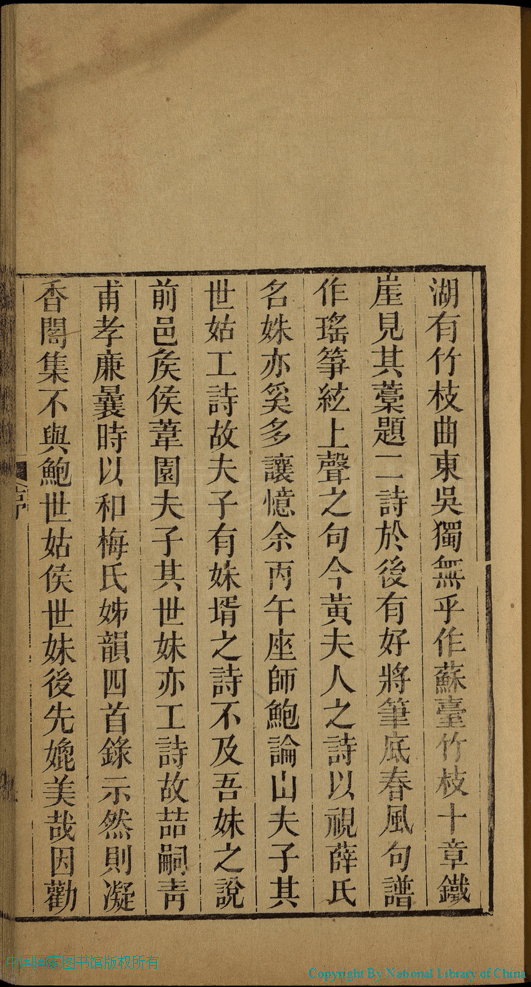 湖有竹枝曲東吳獨無乎作蘇臺竹枝十章鐵
崖見其藁題二詩於後有好將筆底春風句譜
作瑤箏絃上聲之句今黃夫人之詩以視薛氏
名姝亦奚多讓憶余丙午座師鮑論山夫子其
世姑工詩故夫子有妹壻之詩不及吾妹之說
前邑矦侯葦園夫子其世妹亦工詩故喆嗣青
甫孝廉曩時以和梅氏姊韻四首錄示然則凝
香閣集不與鮑世姑侯世妹後先媲美哉因勸
序
中國國家图书馆版权所有
Copyright By National Library of China